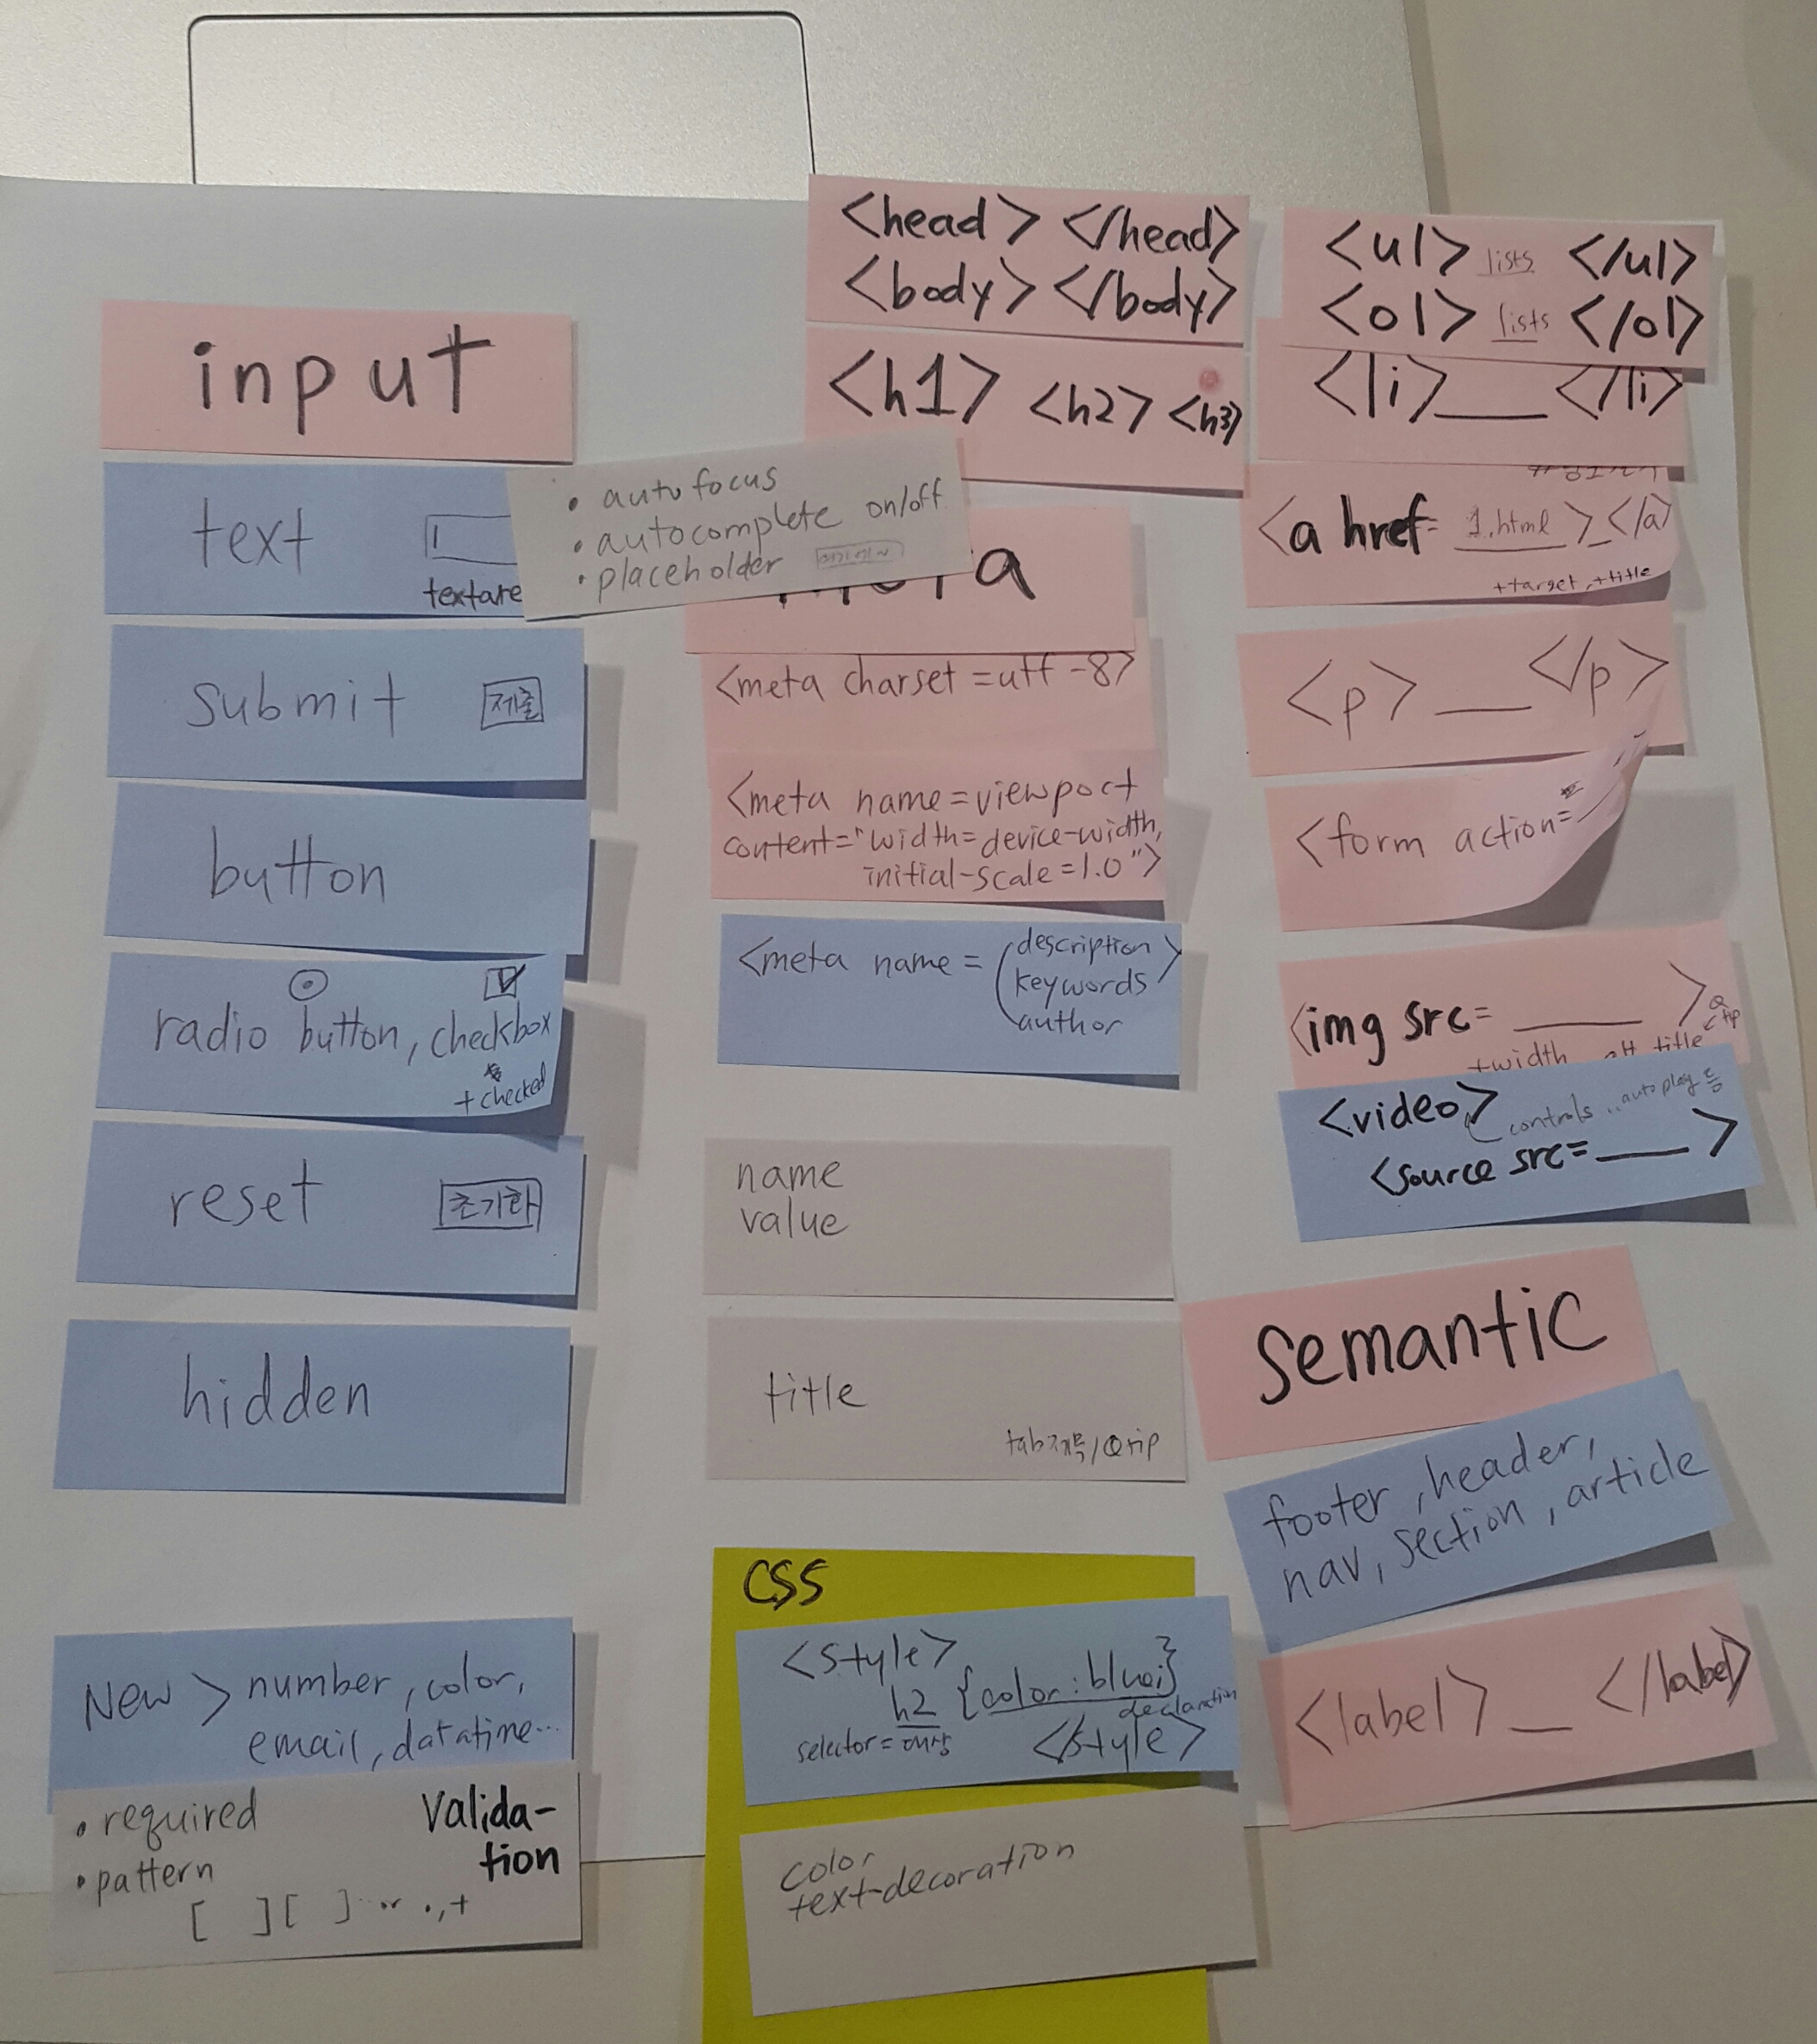 input
text
textare
• autofocus
• autocomplete on/off
• placeholder
submit 제출
button
radio button, checkbox
+ checked
reset 초기화
hidden
New > number, color,
email, datatime...
• required
• pattern
Valida-
tion
[ ][ ] ... .,+
<head> </head>
<body> </body>
<h1> <h2> <h3>
<meta charset=utf-8>
<meta name=viewport
content="width=device-width,
initial-scale=1.0">
<meta name= description>
keywords
author
name
value
title
tab제목/Qtip
CSS
<style>
h2 {color:blue;}
declaration
selector=대상
</style>
color
text-decoration
<ul> lists </ul>
<ol> lists </ol>
<li>___</li>
<a href= 1.html >_</a>
+target, +title
<p>___</p>
<form action=
<img src= ______ >
+width alt title Qtip
<video>
controls .. autoplay 등
<source src=____ >
semantic
footer, header,
nav, section, article
<label>_</label>